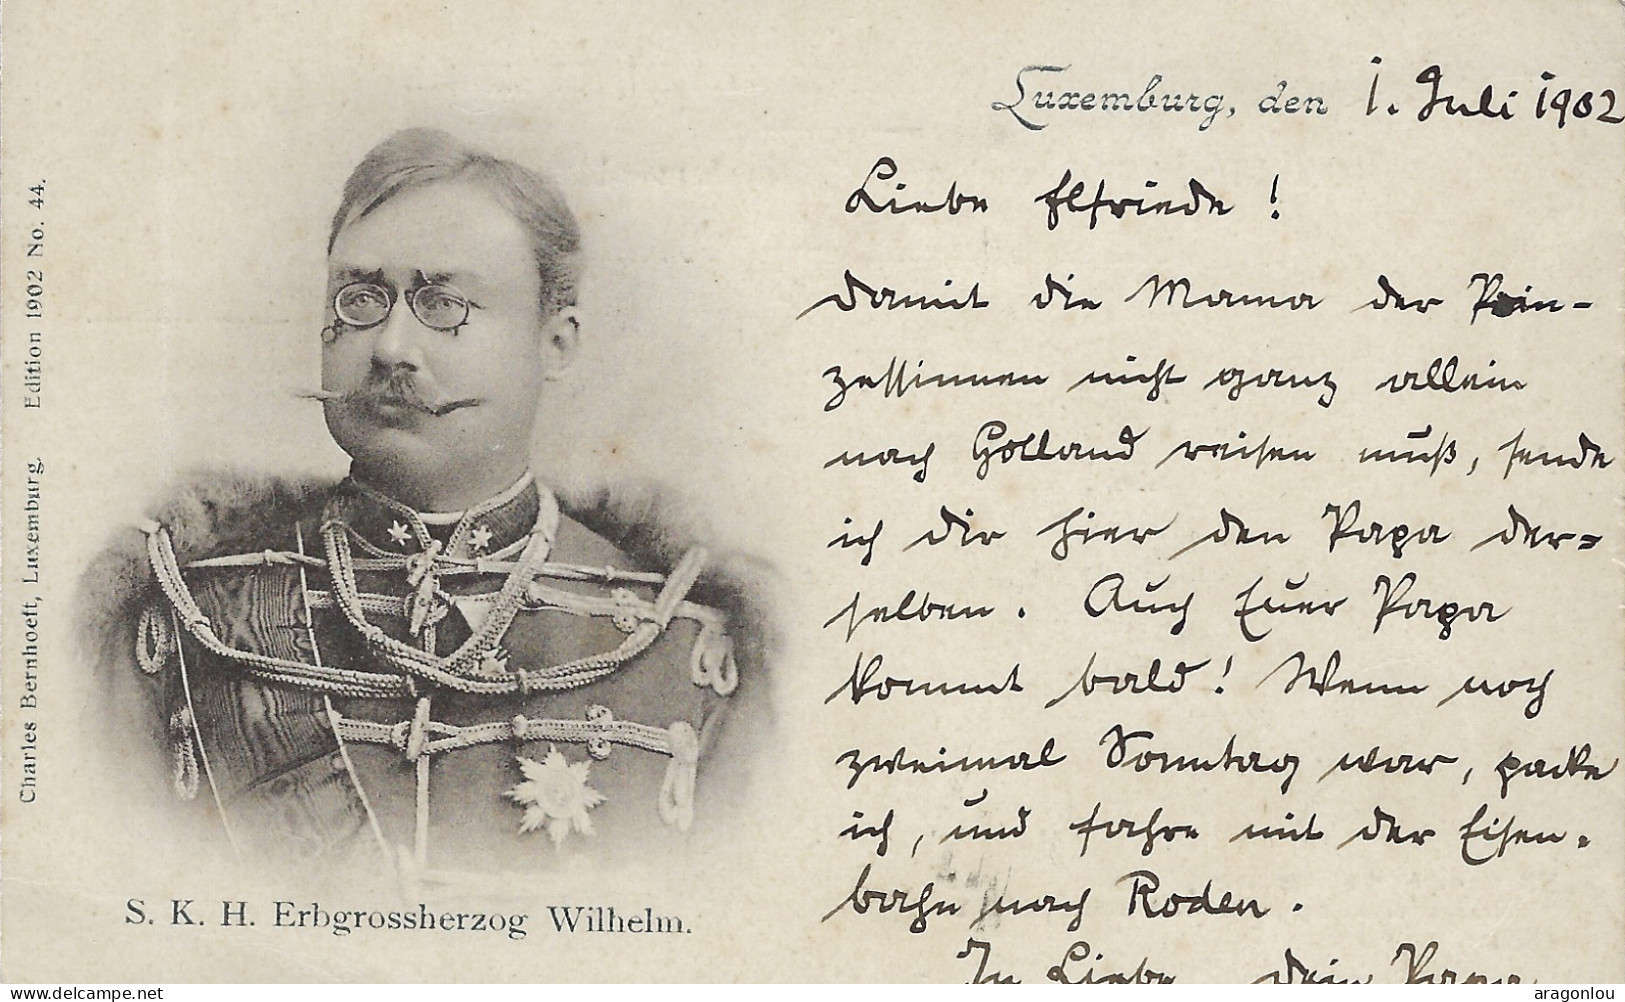 Luxemburg, den 1. Juli 1902
Liebe Elfriede!
damit die Mama der Prin-
zessinnen nicht ganz allein
nach Holland reisen muß, sende
ich dir hier den Papa der=
selben. Auch Euer Papa
kommt bald! Wenn noch
zweimal Sonntag war, packe
ich, und fahre mit der Eisen-
bahn nach Roden.
In Liebe dein Papa
S. K. H. Erbgrossherzog Wilhelm.
Charles Bernhoeft, Luxemburg. Edition 1902 No. 44.
aragonlou